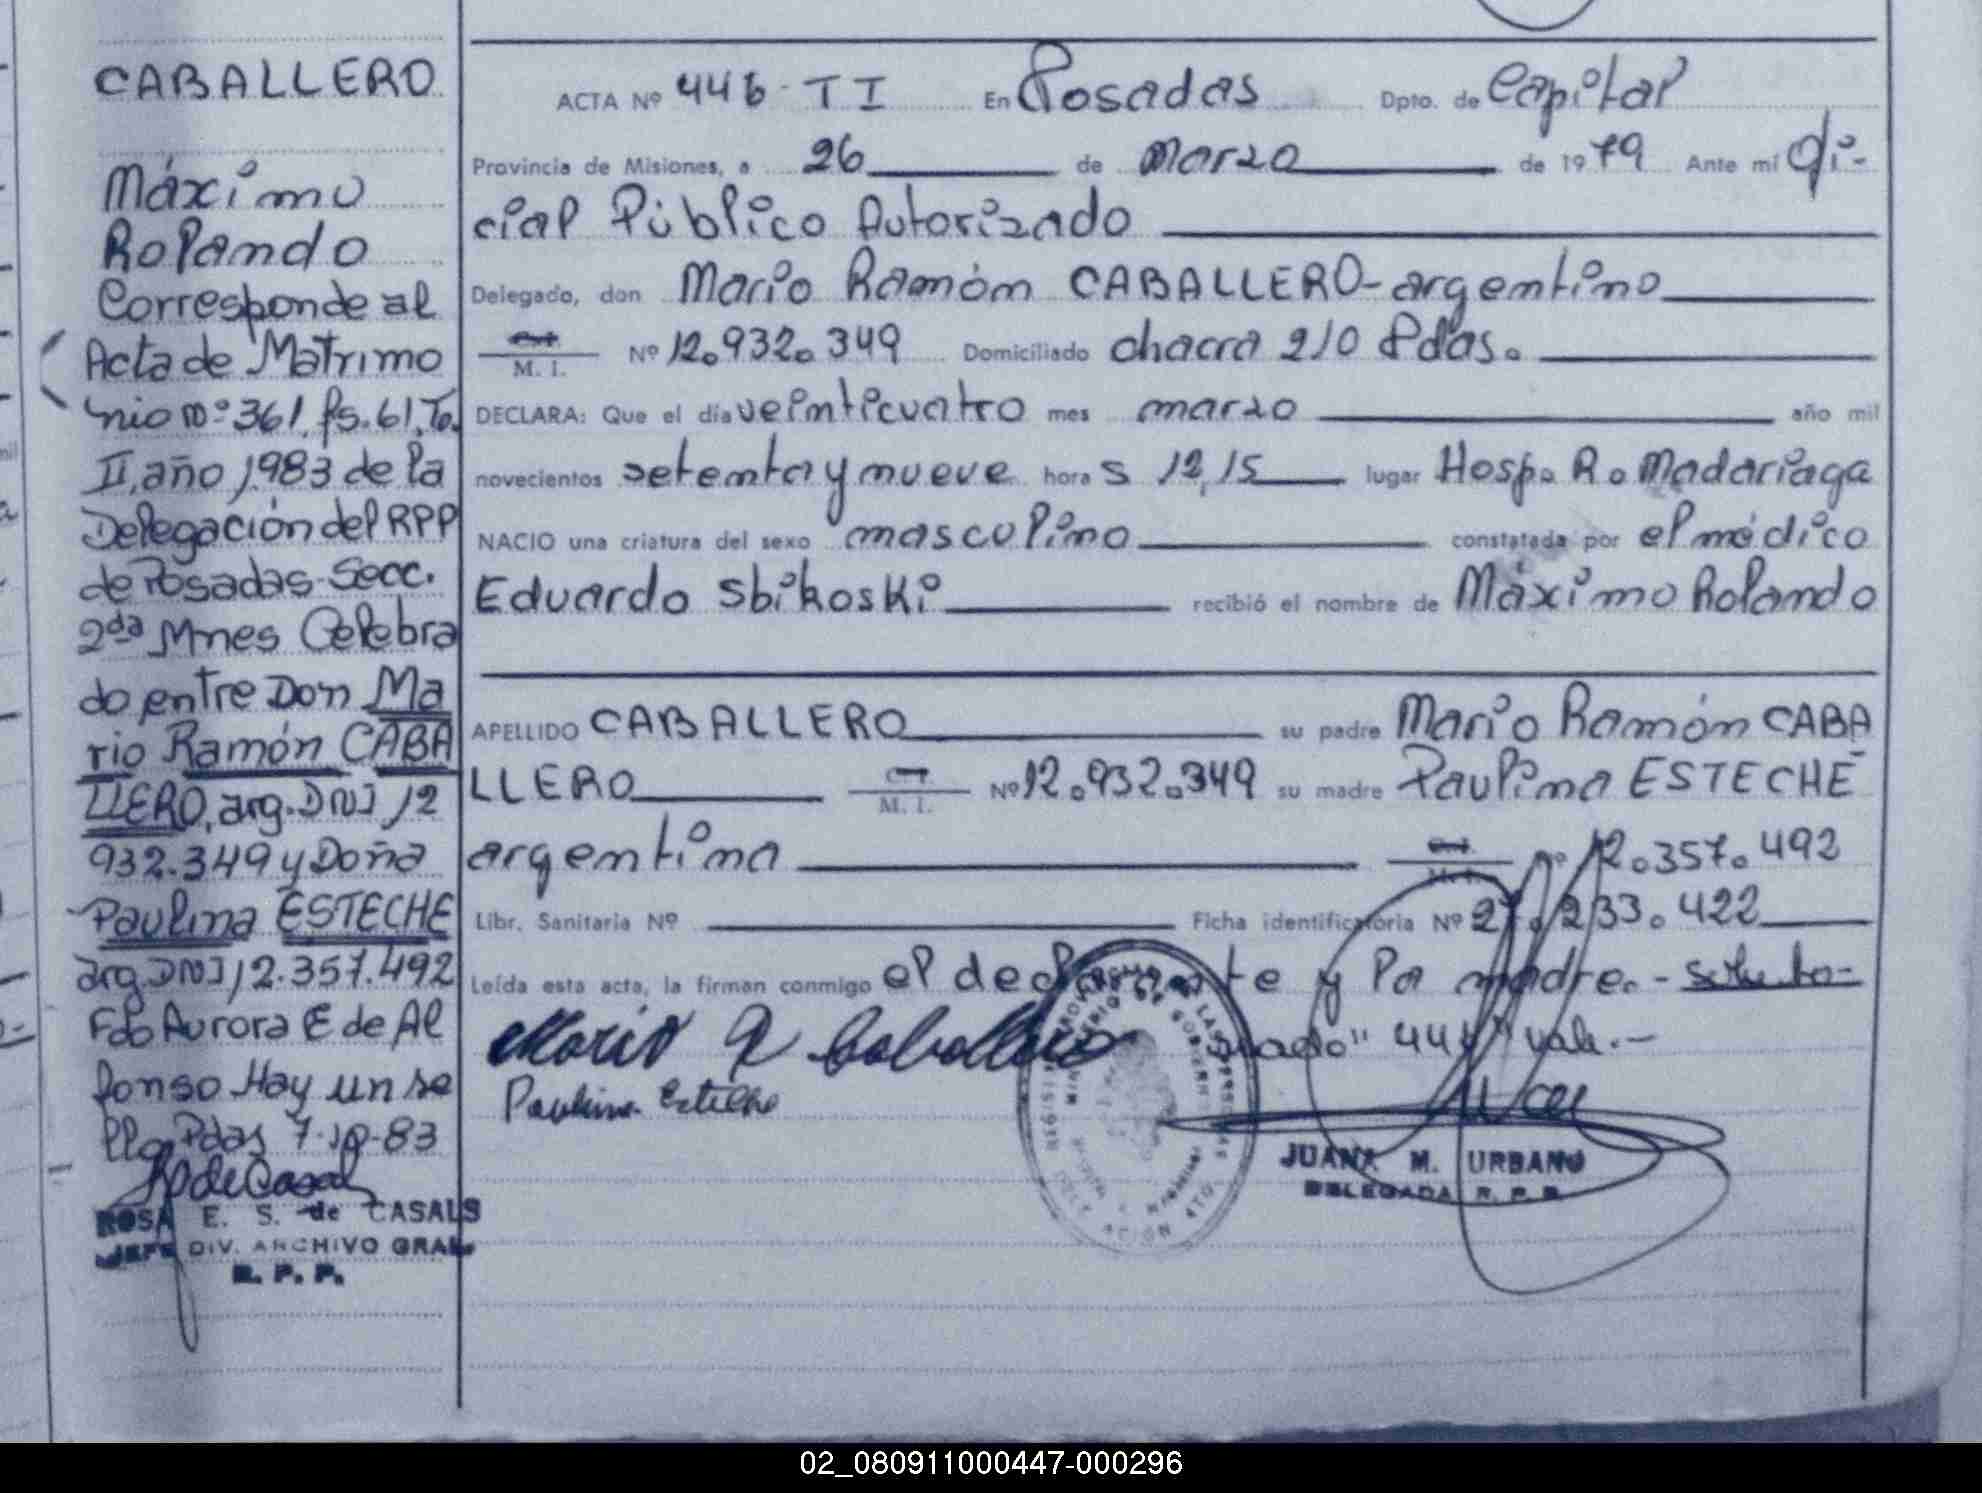 CABALLERO
Máximo
Rolando
Corresponde al
Acta de Matrimo
nio nº 361, fs. 61, To.
II, año 1983 de la
Delegación del RPP
de Posadas - Secc.
2da Mnes Celebra
do entre Don Ma
rio Ramón CABA
LLERO, arg. DNI 12
932.349 y Doña
Paulina ESTECHE
arg. DNI 12.357.492
Fdo Aurora E de Al
fonso Hay un se
llo Pdas 7-10-83
ROSA E. S. de CASALS
JEFE DIV. ARCHIVO GRAL.
R. P. P.
ACTA Nº 446 - TI En Posadas Dpto. de Capital
Provincia de Misiones, a 26 de Marzo de 1979 Ante mí Ofi-
cial Público Autorizado
Delegado, don Mario Ramón CABALLERO - argentino
M. I. Nº 12.932.349 Domiciliado chacra 210 Pdas.
DECLARA: Que el día veinticuatro mes marzo año mil
novecientos setenta y nueve horas 12,15 lugar Hosp. R. Madariaga
NACIO una criatura del sexo masculino constatada por el médico
Eduardo Sbikoski recibió el nombre de Máximo Rolando
APELLIDO CABALLERO su padre Mario Ramón CABA
LLERO M. I. Nº 12.932.349 su madre Paulina ESTECHE
argentina M. I. Nº 12.357.492
Libr. Sanitaria Nº Ficha identificatoria Nº 27.233.422
Leída esta acta, la firman conmigo el declarante y la madre.-
"446" vale.-
Mario R Caballero
Paulina Esteche
JUANA M. URBANO
DELEGADA R. P. P.
02_080911000447-000296